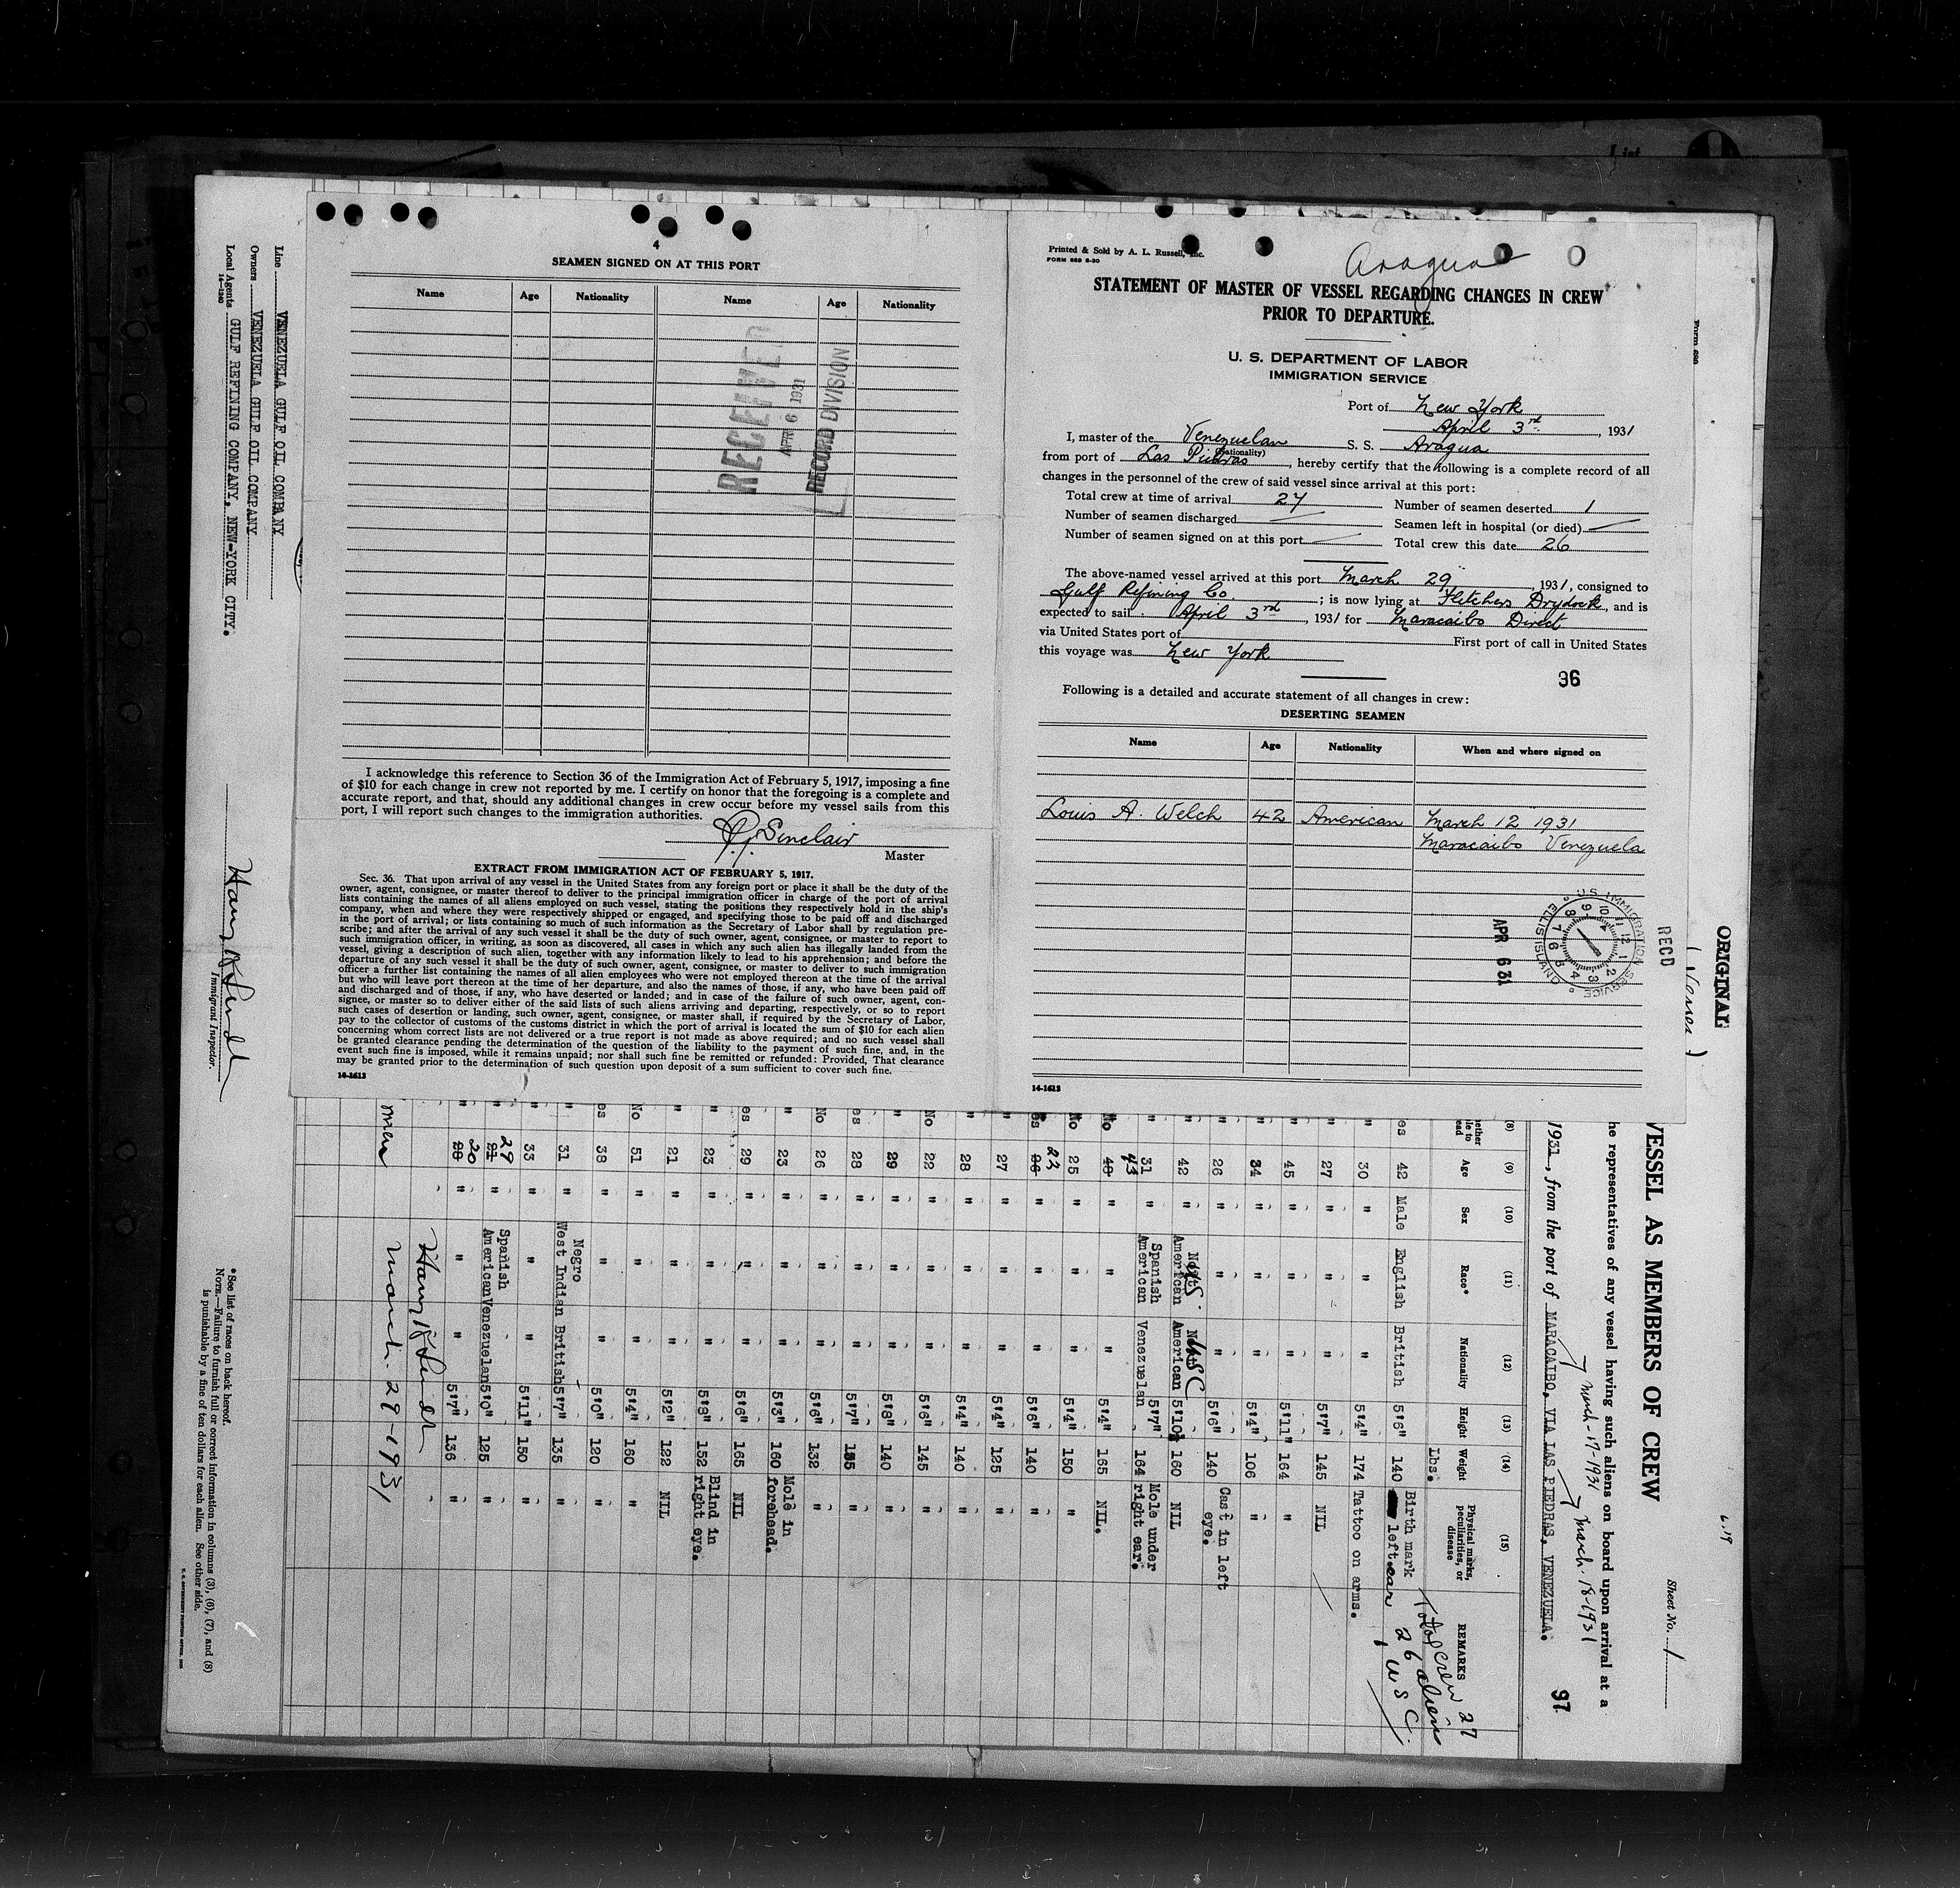 List
4
SEAMEN SIGNED ON AT THIS PORT
Name Age Nationality Name Age Nationality
RECEIVED
APR 6 1931
RECORD DIVISION
I acknowledge this reference to Section 36 of the Immigration Act of February 5, 1917, imposing a fine
of $10 for each change in crew not reported by me. I certify on honor that the foregoing is a complete and
accurate report, and that, should any additional changes in crew occur before my vessel sails from this
port, I will report such changes to the immigration authorities.
Sinclair
Master
EXTRACT FROM IMMIGRATION ACT OF FEBRUARY 5, 1917.
Sec. 36. That upon arrival of any vessel in the United States from any foreign port or place it shall be the duty of the
owner, agent, consignee, or master thereof to deliver to the principal immigration officer in charge of the port of arrival
lists containing the names of all aliens employed on such vessel, stating the positions they respectively hold in the ship's
company, when and where they were respectively shipped or engaged, and specifying those to be paid off and discharged
in the port of arrival; or lists containing so much of such information as the Secretary of Labor shall by regulation pre-
scribe; and after the arrival of any such vessel it shall be the duty of such owner, agent, consignee, or master to report to
such immigration officer, in writing, as soon as discovered, all cases in which any such alien has illegally landed from the
vessel, giving a description of such alien, together with any information likely to lead to his apprehension; and before the
departure of any such vessel it shall be the duty of such owner, agent, consignee, or master to deliver to such immigration
officer a further list containing the names of all alien employees who were not employed thereon at the time of the arrival
but who will leave port thereon at the time of her departure, and also the names of those, if any, who have been paid off
and discharged and of those, if any, who have deserted or landed; and in case of the failure of such owner, agent, con-
signee, or master so to deliver either of the said lists of such aliens arriving and departing, respectively, or so to report
such cases of desertion or landing, such owner, agent, consignee, or master shall, if required by the Secretary of Labor,
pay to the collector of customs of the customs district in which the port of arrival is located the sum of $10 for each alien
concerning whom correct lists are not delivered or a true report is not made as above required; and no such vessel shall
be granted clearance pending the determination of the question of the liability to the payment of such fine, and, in the
event such fine is imposed, while it remains unpaid; nor shall such fine be remitted or refunded: Provided, That clearance
may be granted prior to the determination of such question upon deposit of a sum sufficient to cover such fine.
14-1613
Printed & Sold by A. L. Russell, Inc.
FORM 689 6-30
Aragua
STATEMENT OF MASTER OF VESSEL REGARDING CHANGES IN CREW
PRIOR TO DEPARTURE.
U. S. DEPARTMENT OF LABOR
IMMIGRATION SERVICE
Port of New York
April 3rd, 1931
I, master of the Venezuelan S. S. Aragua
(Nationality)
from port of Las Piedras, hereby certify that the following is a complete record of all
changes in the personnel of the crew of said vessel since arrival at this port:
Total crew at time of arrival 27 Number of seamen deserted 1
Number of seamen discharged — Seamen left in hospital (or died) —
Number of seamen signed on at this port — Total crew this date 26
The above-named vessel arrived at this port March 29, 1931, consigned to
Gulf Refining Co. ; is now lying at Fletchers Drydock, and is
expected to sail April 3rd, 1931 for Maracaibo Direct
via United States port of First port of call in United States
this voyage was New York
96
Following is a detailed and accurate statement of all changes in crew:
DESERTING SEAMEN
Name Age Nationality When and where signed on
Louis A. Welch 42 American March 12 1931
Maracaibo Venezuela
RECD
U.S. IMMIGRATION SERVICE ELLIS ISLAND
APR 6 31
14-1613
Form 689
ORIGINAL
VESSEL AS MEMBERS OF CREW
Sheet No. 1
he representatives of any vessel having such aliens on board upon arrival at a
March-17-1931 March-18-1931
1931, from the port of MARACAIBO, VIA LAS PIEDRAS, VENEZUELA.
97
(8) (9) (10) (11) (12) (13) (14) (15)
Age Sex Race* Nationality Height Weight Lbs. Physical marks, peculiarities, or disease REMARKS
Total crew 27
26 alien
1 USC
es 42 Male English British 5'6" 140 Birth mark left ear
" 30 " " " 5'4" 174 Tattoo on arms.
" 27 " " " 5'7" 145 NIL
" 45 " " " 5'11" 164 "
" 34 " " " 5'4" 106 "
" 26 " " " 5'6" 140 Cast in left eye.
" 42 " North American North American USC 5'10½ 160 NIL
" 31 " Spanish American Venezuelan 5'7" 164 Mole under right ear.
No 40 43 " " " 5'4" 165 NIL.
No 25 " " " 5'4" 150 "
es 26 22 " " " 5'6" 140 "
" 27 " " " 5'4" 125 "
" 28 " " " 5'4" 140 "
No 22 " " " 5'6" 145 "
" 29 " " " 5'8" 140 "
es 28 " " " 5'7" 135 "
No 26 " " " 5'6" 132 "
" 23 " " " 5'3" 160 Mole in forehead.
es 29 " " " 5'6" 165 NIL
" 23 " " " 5'8" 152 Blind in right eye.
" 21 " " " 5'2" 122 NIL
No 51 " " " 5'4" 160 "
es 38 " " " 5'0" 120 "
" 31 " Negro West Indian British 5'7" 135 "
" 33 " " " 5'11" 150 "
" 29 " Spanish American Venezuelan 5'0" 125 "
" 20 " " " 5'7" 136 "
March-29-1931
Line VENEZUELA GULF OIL COMPANY
Owners VENEZUELA GULF OIL COMPANY
Local Agents GULF REFINING COMPANY, NEW-YORK CITY.
14-1240
Immigrant Inspector.
*See list of races on back hereof.
NOTE.—Failure to furnish full or correct information in columns (3), (6), (7), and (8)
is punishable by a fine of ten dollars for each alien. See other side.